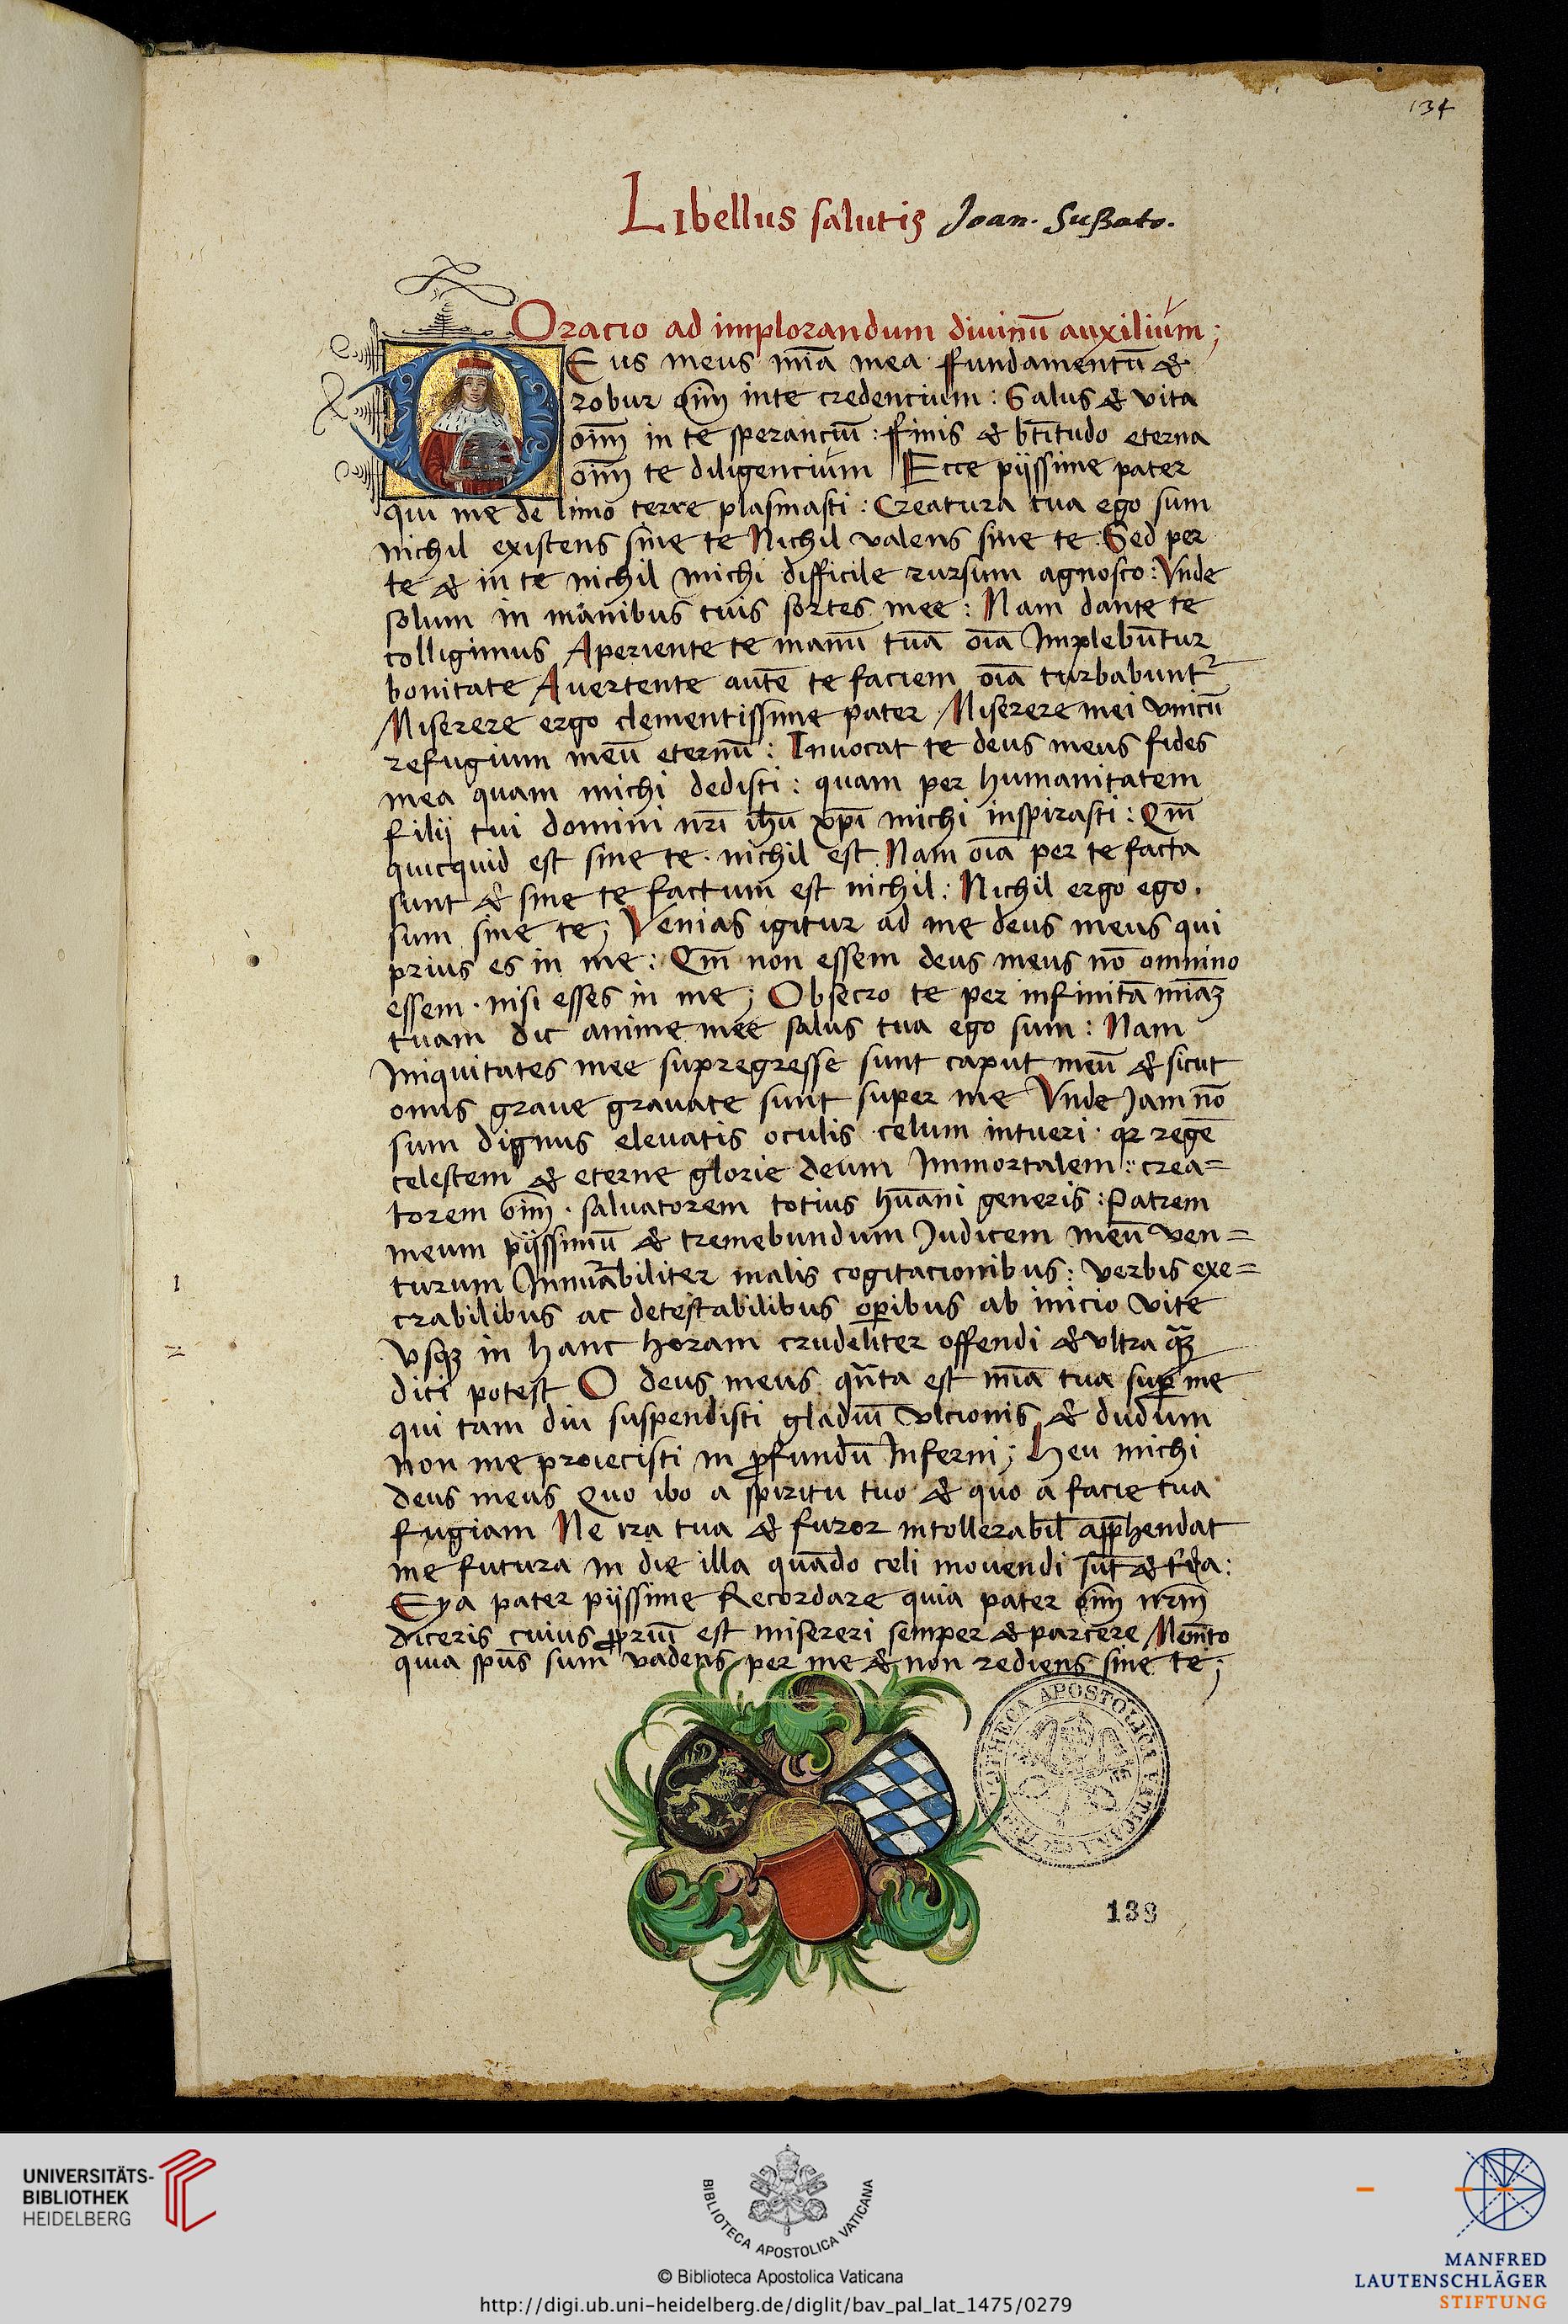 134
Libellus salutis Joan. Sußato.
Oracio ad implorandum diuinū auxilium;
DEus meus mīa mea fundamentū &
robur oīm inte credencium : Salus & vita
oīm in te sperancīu : finis & btītudo eterna
oīm te diligencium Ecce pijssime pater
qui me de limo terre plasmasti : Creatura tua ego sum
nichil existens sine te Nichil valens sine te Sed per
te & in te nichil michi difficile rursum agnosco : Vnde
solum in manibus tuis sortes mee : Nam dante te
colligimus Aperiente te manū tuā oīa Implebūtur
bonitate Auertente autē te faciem oīa turbabunt
Miserere ergo clementissime pater Miserere mei vnicū
refugium meū eternū : Inuocat te deus meus fides
mea quam michi dedisti : quam per humanitatem
filij tui domini nrī ihū xpī michi inspirasti : Qm̄
quicquid est sine te · nichil est Nam oīa per te facta
sunt & sine te factum est nichil : Nichil ergo ego ·
sum sine te ; Venias igitur ad me deus meus qui
prius es in me : Qm̄ non essem deus meus nō omnino
essem · nisi esses in me ; Obsecro te per infinitā mīaꝫ
tuam dic anime mee salus tua ego sum : Nam
Iniquitates mee supregresse sunt caput meū & sicut
onus graue grauate sunt super me Vnde Jam nō
sum dignus eleuatis oculis celum intueri · qꝛ regē
celestem & eterne glorie deum Immortalem : crea=
torem oīm · saluatorem totius hūani generis : Patrem
meum pijssimū & tremebundum Judicem meū ven=
turum Innuābiliter malis cogitacionibus : verbis exe=
crabilibus ac detestabilibus oꝑibus ab inicio vite
vsqꝫ in hanc horam crudeliter offendi & vltra qꝫ
dici potest O deus meus qn̄ta est mīa tua suꝑ me
qui tam diu suspendisti gladiū vlcionis & dudum
non me proiecisti in ꝓfundū Inferni ; Heu michi
deus meus Quo ibo a spiritu tuo & quo a facie tua
fugiam Ne ira tua & furor intollerabil̄ apꝑhendat
me futura in die illa quādo celi mouendi sūt & t̄ra :
Eya pater pijssime Recordare quia pater oīm nrm̄
diceris cuius ꝓpriū est misereri semper & parcere Memēto
quia spūs sum vadens per me & non rediens sine te ;
BIBLIOTHECA APOSTOLICA VATICANA
138
UNIVERSITÄTS-
BIBLIOTHEK
HEIDELBERG
BIBLIOTECA APOSTOLICA VATICANA
© Biblioteca Apostolica Vaticana
http://digi.ub.uni-heidelberg.de/diglit/bav_pal_lat_1475/0279
MANFRED
LAUTENSCHLÄGER
STIFTUNG